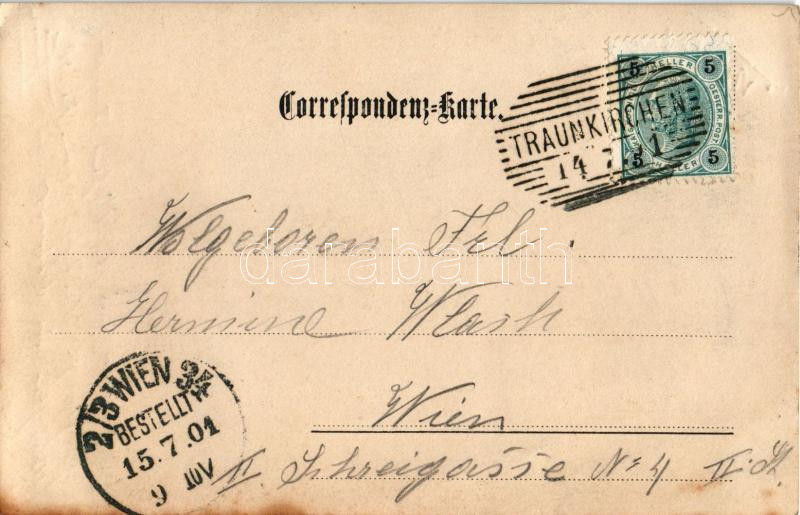 Correspondenz=Karte.
5 HELLER 5
5 HELLER 5
TRAUNKIRCHEN
14 7 1
Wolgeboren Frl.
Hermine Wlash
Wien
II. Schreigasse No 4 II. St.
2/3 WIEN 34
BESTELLT
15.7.01
9
darabanth